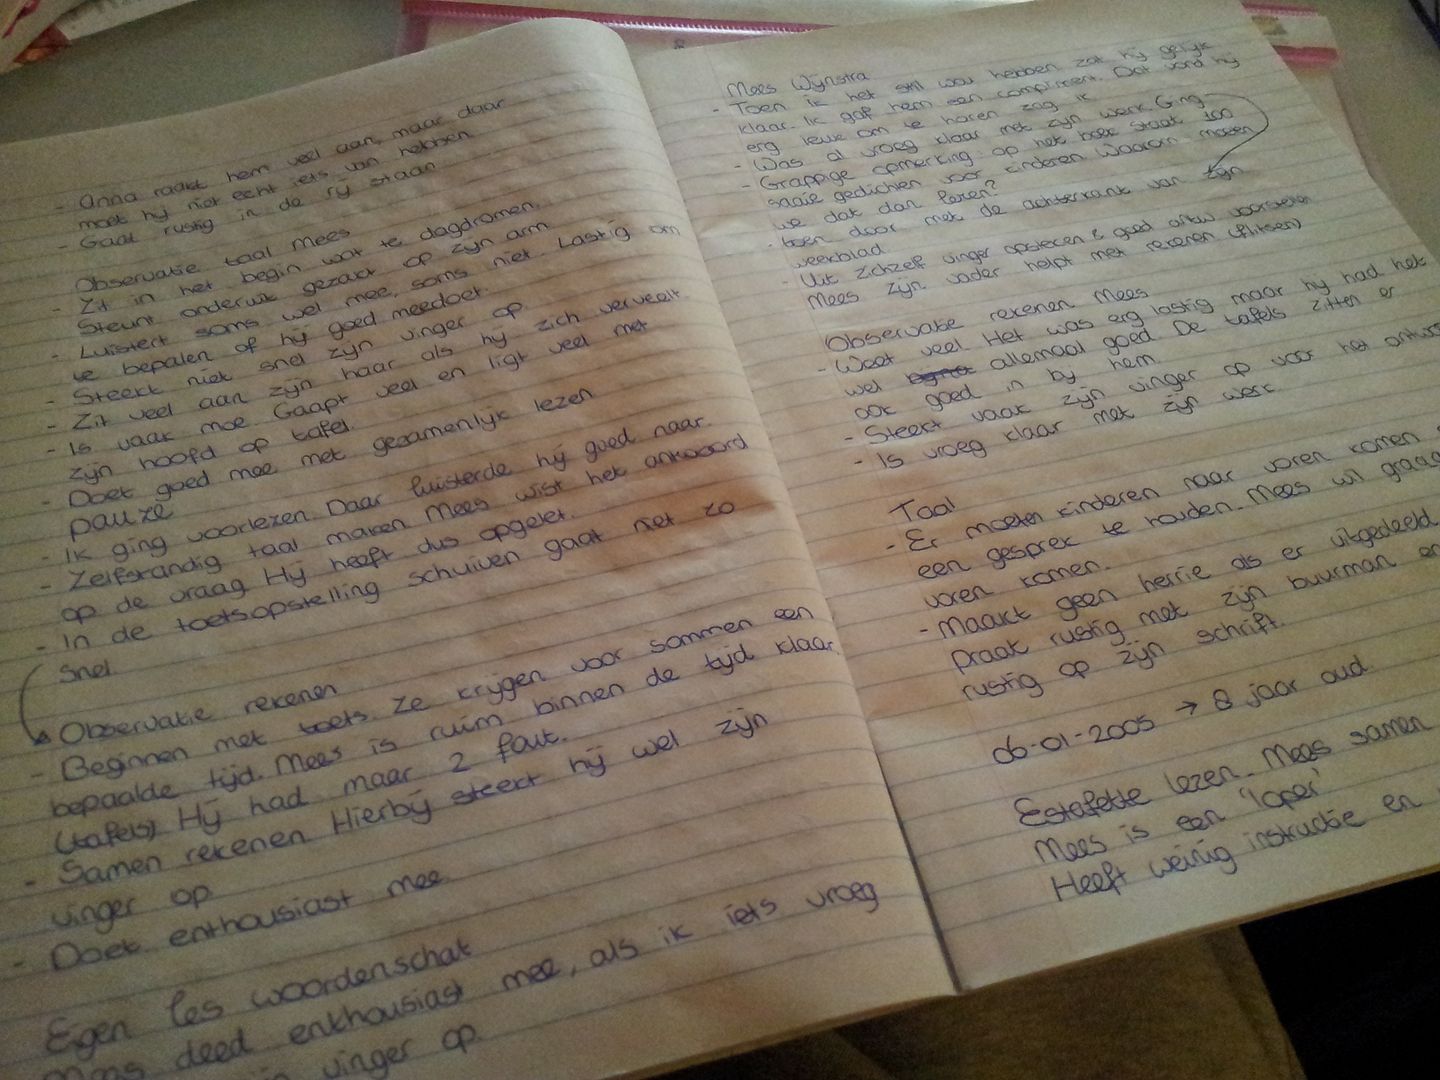 - Anna raakt hem veel aan, maar daar
moet hij niet echt iets van hebben
- Gaat rustig in de rij staan
Observatie taal Mees
- Zit in het begin wat te dagdromen.
Steunt onderuit gezakt op zijn arm
- Luistert soms wel mee, soms niet. Lastig om
te bepalen of hij goed meedoet.
- Steekt niet snel zijn vinger op
- Zit veel aan zijn haar als hij zich verveelt.
- Is vaak moe. Gaapt veel en ligt veel met
zijn hoofd op tafel.
- Doet goed mee met gezamenlijk lezen
pauze
- Ik ging voorlezen. Daar luisterde hij goed naar.
- Zelfstandig taal maken Mees wist het antwoord
op de vraag. Hij heeft dus opgelet.
- In de toetsopstelling schuiven gaat niet zo
snel
Observatie rekenen
- Beginnen met toets. Ze krijgen voor sommen een
bepaalde tijd. Mees is ruim binnen de tijd klaar.
(tafels) Hij had maar 2 fout.
- Samen rekenen Hierbij steekt hij wel zijn
vinger op
- Doet enthousiast mee
Eigen les woordenschat
Mees deed enthousiast mee, als ik iets vroeg
vinger op
Mees Wijnstra
- Toen ik het stil wou hebben zat hij gelijk
klaar. Ik gaf hem een compliment. Dat vond hij
erg leuk om te horen zag ik
- Was al vroeg klaar met zijn werk. Ging
- Grappige opmerking: op het boek staat 100
saaie gedichten voor kinderen waarom moeten
we dat dan leren?
- toen door met de achterkant van zijn
weekblad
- Uit zichzelf vinger opsteken & goed antw voorstellen
Mees zijn vader helpt met rekenen (flitsen)
Observatie rekenen Mees
- Weet veel Het was erg lastig maar hij had het
wel allemaal goed De tafels zitten er
ook goed in bij hem
- Steekt vaak zijn vinger op voor het
- Is vroeg klaar met zijn werk
Taal
- Er moeten kinderen naar voren komen
een gesprek te houden. Mees wil graag
voren komen.
- Maakt geen herrie als er uitgedeeld
praat rustig met zijn buurman en
rustig op zijn schrift.
06-01-2005 → 8 jaar oud
Estafette lezen. Mees samen
Mees is een 'loper'
Heeft weinig instructie en